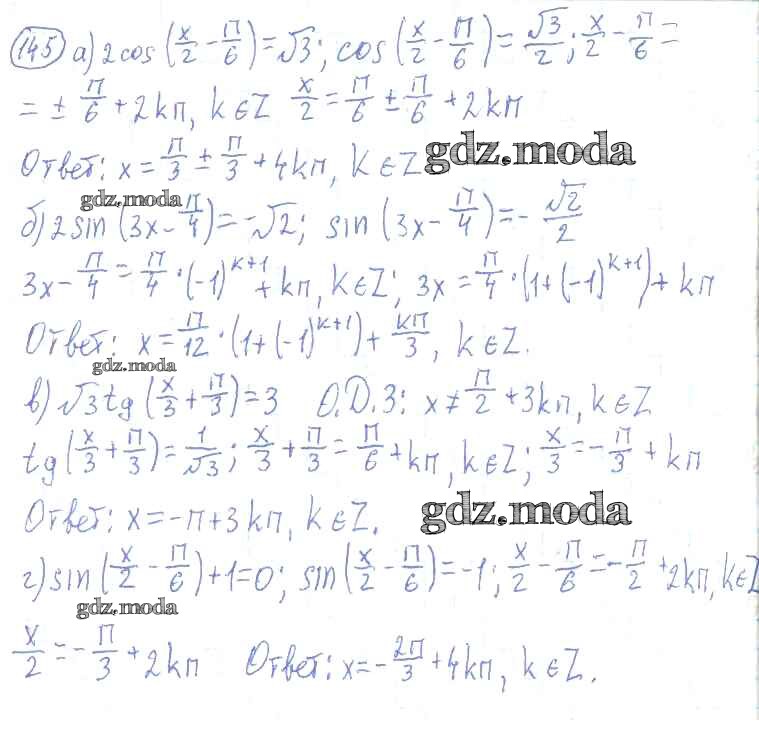 145 а) 2cos(x/2 - π/6) = √3; cos(x/2 - π/6) = √3/2; x/2 - π/6 =
= ± π/6 + 2kπ, k∈Z x/2 = π/6 ± π/6 + 2kπ
Ответ: x = π/3 ± π/3 + 4kπ, k∈Z gdz.moda
gdz.moda
б) 2sin(3x - π/4) = -√2; sin(3x - π/4) = - √2/2
3x - π/4 = π/4 · (-1)^(k+1) + kπ, k∈Z; 3x = π/4 · (1+(-1)^(k+1)) + kπ
Ответ: x = π/12 · (1+(-1)^(k+1)) + kπ/3, k∈Z.
gdz.moda
в) √3 tg(x/3 + π/3) = 3 О.Д.З: x ≠ π/2 + 3kπ, k∈Z
tg(x/3 + π/3) = 1/√3; x/3 + π/3 = π/6 + kπ, k∈Z; x/3 = - π/3 + kπ
Ответ: x = -π + 3kπ, k∈Z. gdz.moda
г) sin(x/2 - π/6) + 1 = 0; sin(x/2 - π/6) = -1; x/2 - π/6 = - π/2 + 2kπ, k∈Z
gdz.moda
x/2 = - π/3 + 2kπ Ответ: x = - 2π/3 + 4kπ, k∈Z.